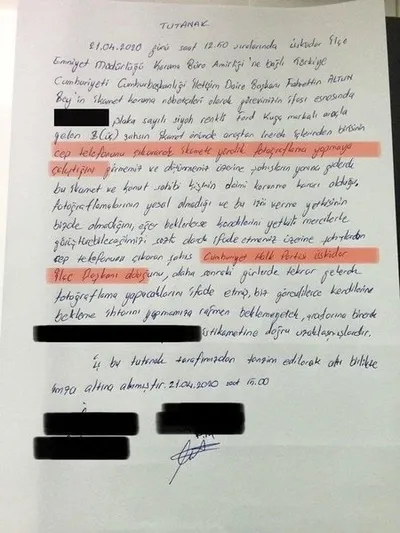 TUTANAK
21.04.2020 günü saat 12.50 sıralarında Üsküdar İlçe
Emniyet Müdürlüğü Koruma Büro Amirliği'ne bağlı Türkiye
Cumhuriyeti Cumhurbaşkanlığı İletişim Daire Başkanı Fahrettin ALTUN
Bey'in ikamet koruma nöbetçileri olarak görevimizin ifası esnasında
plaka sayılı siyah renkli Ford Kuga markalı araçla
gelen 3(üç) şahsın ikamet önünde araçtan inerek içlerinden birisinin
cep telefonunu çıkararak ikamete yönelik fotoğraflama yapmaya
çalıştığını görmemiz ve üzerine şahısların yanına giderek
bu ikamet ve konut sahibi kişinin daimi koruma kararı olduğu,
fotoğraflamalarının yasal olmadığı ve bu izni verme yetkisinin
bizde olmadığını, eğer beklerlerse kendilerini yetkili mercilerle
görüştürebileceğimizi sözlü olarak ifade etmemiz üzerine şahıslardan
cep telefonunu çıkaran şahıs Cumhuriyet Halk Partisi Üsküdar
İlçe Başkanı olduğunu, daha sonraki günlerde tekrar gelerek
fotoğraflama yapacaklarını ifade etmiş, biz görevlilerce kendilerine
bekleme ihtarını yapmamıza rağmen beklemeyerek, araçlarına binerek
istikametine doğru uzaklaşmışlardır.
İş bu tutanak tarafımızdan tanzim edilerek birlikte
imza altına alınmıştır. 21.04.2020 saat 13.00